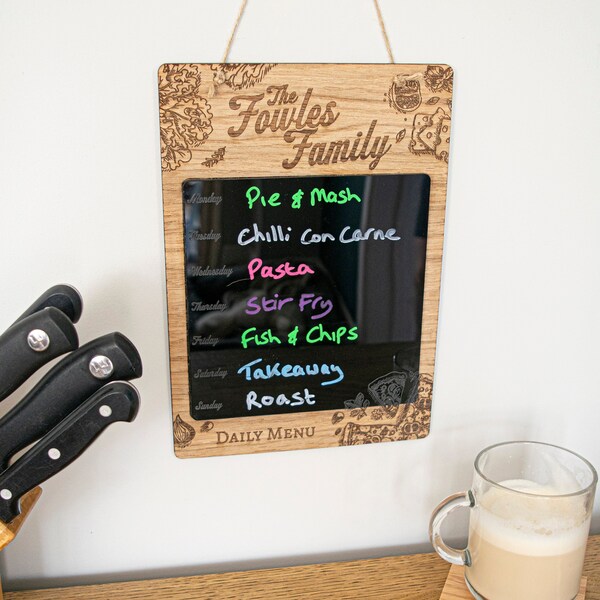 The
Fowles
Family
Monday Pie & Mash
Tuesday Chilli Con Carne
Wednesday Pasta
Thursday Stir Fry
Friday Fish & Chips
Saturday Takeaway
Sunday Roast
Daily Menu